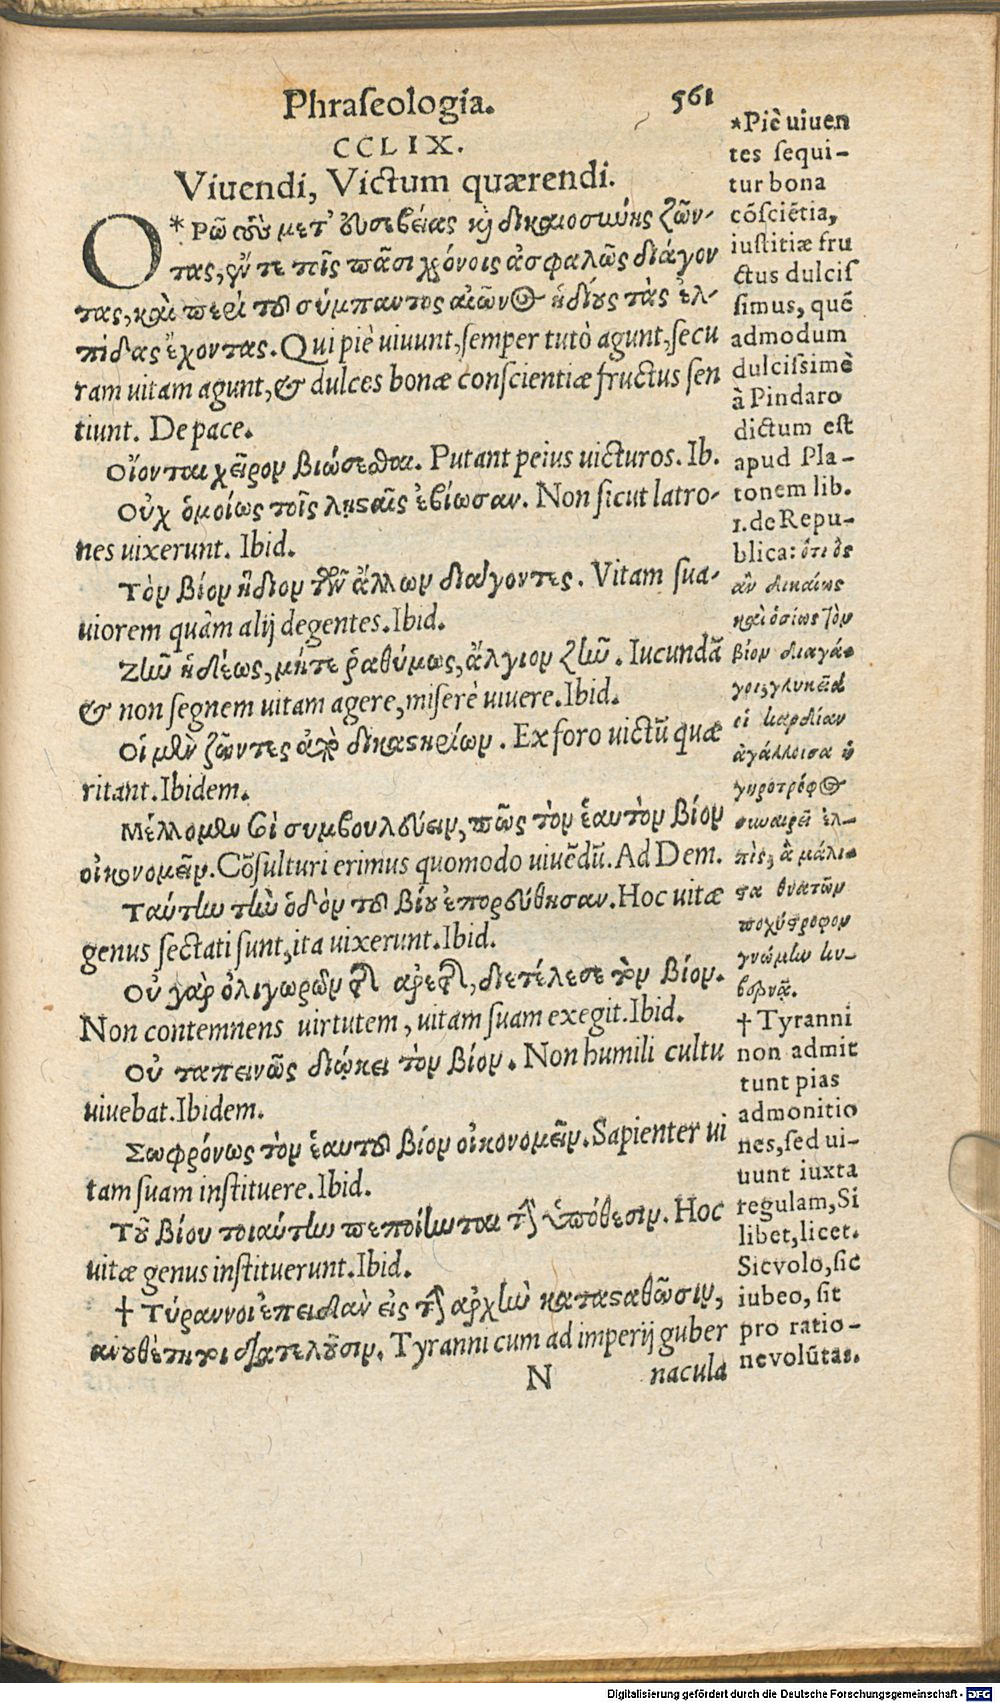 Phraſeologia. 561
CCLIX.
Viuendi, Victum quærendi.
Ὁ*Ρῶ τοὺς μετ' εὐσεβείας καὶ δικαιοσύνης ζῶν-
τας, ἔν τε τοῖς παροῦσι χρόνοις ἀσφαλῶς διάγον
τας, καὶ περὶ τοῦ σύμπαντος αἰῶνος ἡδίους τὰς ἐλ-
πίδας ἔχοντας. Qui piè viuunt, ſemper tutò agunt, ſecu
ram vitam agunt, & dulces bonæ conſcientiæ fructus ſen
tiunt. De pace.
Οἴονται χεῖρον βιώσεσθαι. Putant peius victuros. Ib.
Οὐχ ὁμοίως τοῖς λῃσταῖς ἐβίωσαν. Non ſicut latro-
nes vixerunt. Ibid.
Τὸν βίον ἥδιον τῶν ἄλλων διάγοντες. Vitam ſua-
uiorem quàm alij degentes. Ibid.
Ζῶ ἡδέως, μήτε ῥαθύμως, ἄλγιον ζῶ. Iucundã
& non ſegnem vitam agere, miſerè viuere. Ibid.
Οἱ μὲν ζῶντες ἀπὸ δικαστηρίων. Ex foro victũ quæ
ritant. Ibidem.
Μέλλομεν συμβουλεύειν, πῶς τὸν ἑαυτὸν βίον
οἰκονομεῖν. Cõſulturi erimus quomodo viuẽdũ. Ad Dem.
Ταύτην τὴν ὁδὸν τοῦ βίου ἐπορεύθησαν. Hoc vitæ
genus ſectati ſunt, ita vixerunt. Ibid.
Οὐ γὰρ ὀλιγωρῶν τῆς ἀρετῆς, διετέλεσε τὸν βίον.
Non contemnens virtutem, vitam ſuam exegit. Ibid.
Οὐ ταπεινῶς διῴκει τὸν βίον. Non humili cultu
viuebat. Ibidem.
Σωφρόνως τὸν ἑαυτοῦ βίον οἰκονομεῖν. Sapienter vi
tam ſuam inſtituere. Ibid.
Τοῦ βίου τοιαύτην πεποίηνται τὴν ὑπόθεσιν. Hoc
vitæ genus inſtituerunt. Ibid.
† Τύραννοι ἐπειδὰν εἰς τὴν ἀρχὴν κατασταθῶσιν,
ἀνουθέτητοι διατελοῦσιν. Tyranni cum ad imperij guber
N nacula
*Piè viuen
tes ſequi-
tur bona
cõſciẽtia,
iuſtitiæ fru
ctus dulciſ
ſimus, quẽ
admodum
dulciſſimè
à Pindaro
dictum eſt
apud Pla-
tonem lib.
1. de Repu-
blica: ὅτι ὃς
ἂν δικαίως
καὶ ὁσίως τὸν
βίον διαγά-
γοι, γλυκεῖά
οἱ καρδίαν
ἀτάλλοισα
γηροτρόφος
συναορεῖ ἐλ-
πὶς, ἃ μάλι-
στα θνατῶν
πολύστροφον
γνώμην κυ-
βερνᾷ.
† Tyranni
non admit
tunt pias
admonitio
nes, ſed vi-
uunt iuxta
regulam, Si
libet, licet.
Sic volo, ſic
iubeo, ſit
pro ratio-
ne volũtas.
Digitalisierung gefördert durch die Deutsche Forschungsgemeinschaft - DFG